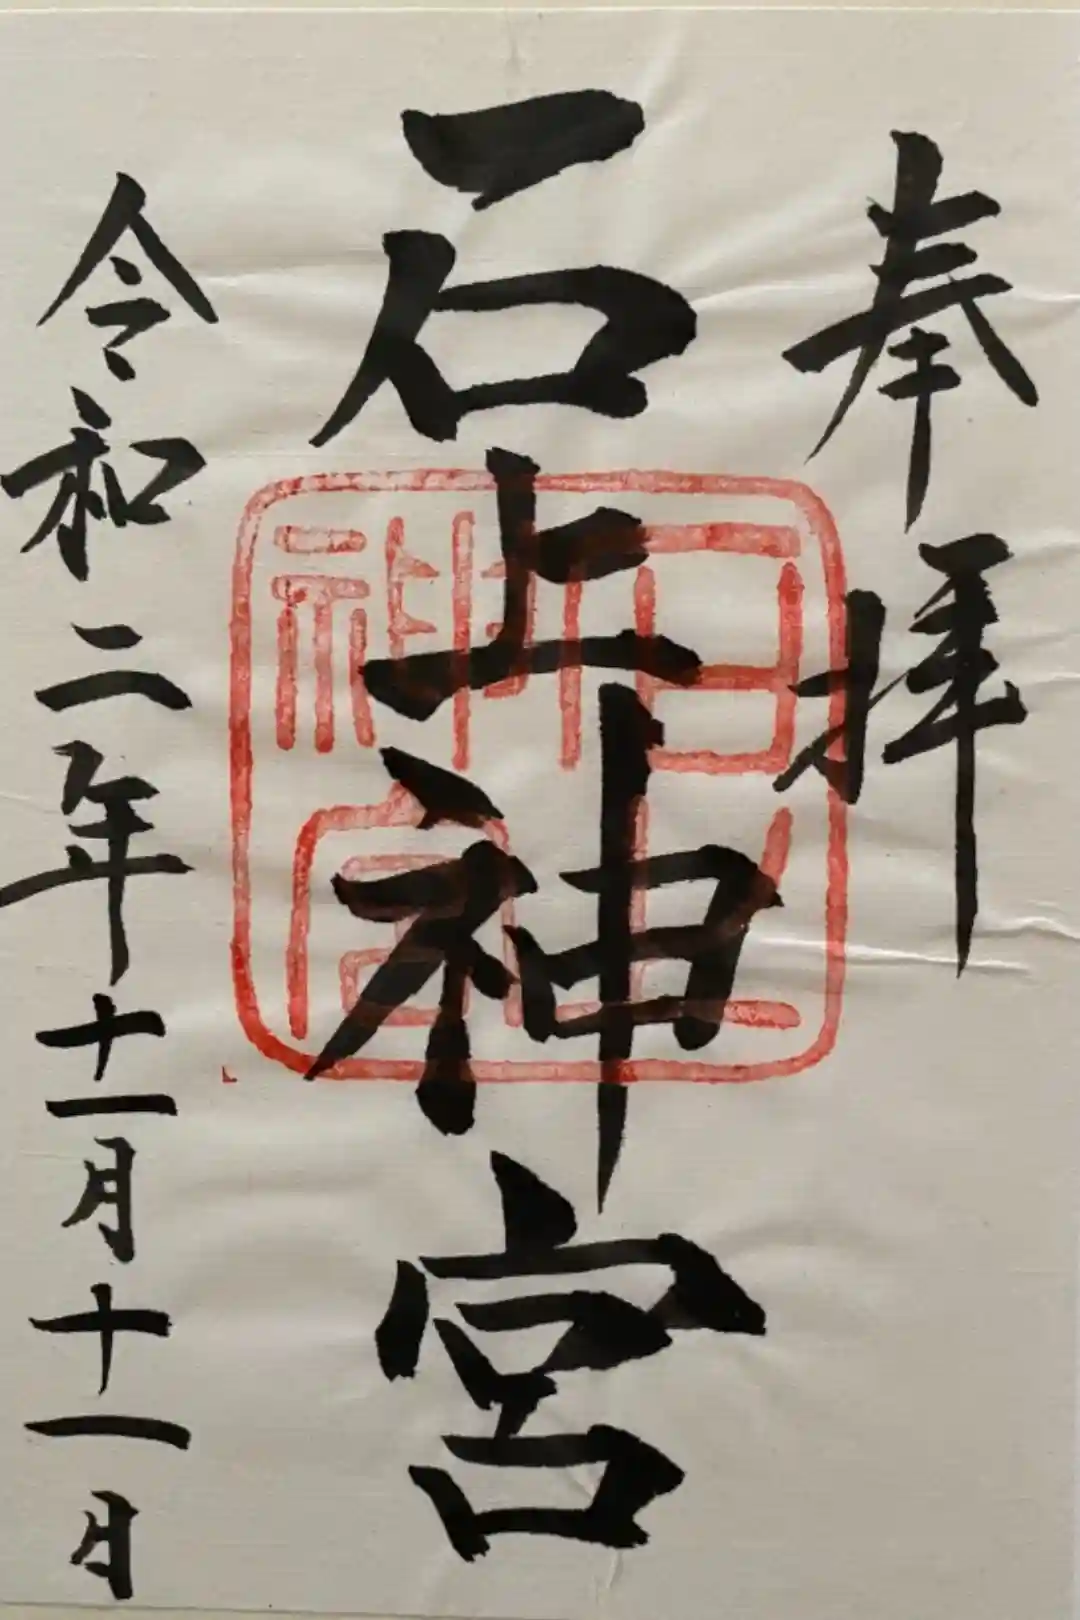 奉拝
石上神宮
石上
神宮
令和二年十一月十一月